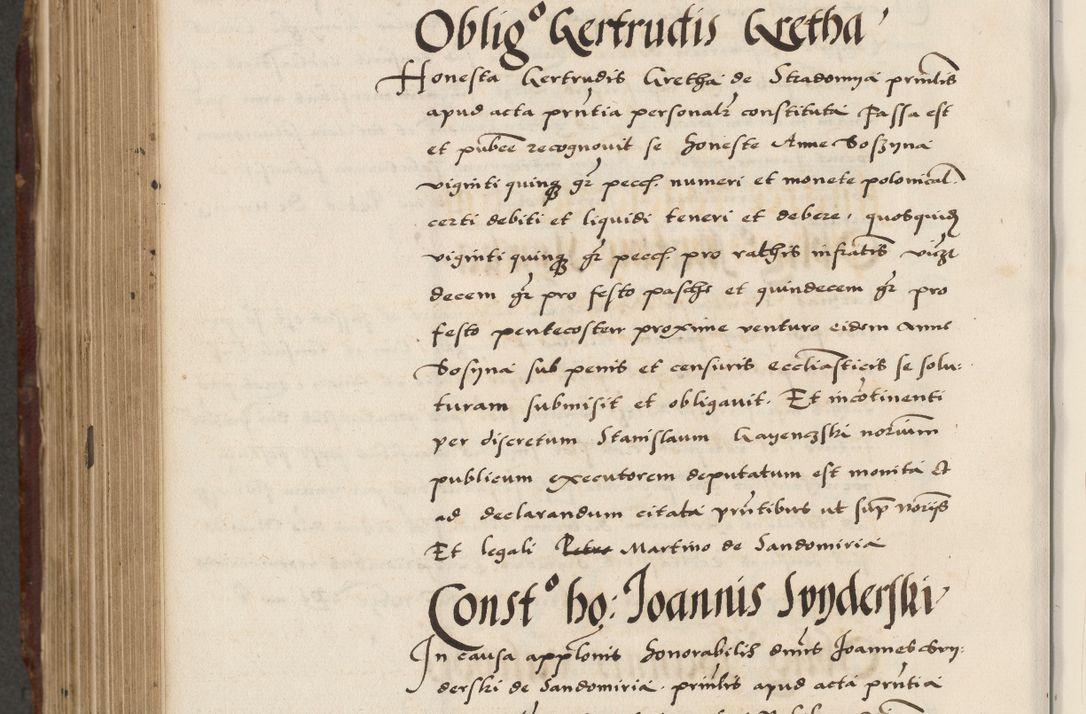 Oblig° Gertrudis Gretha
Honesta Gertrudis Gretha de Stradomya prinlis
apud acta prntia personalr constituta Fassa est
et pubce recognovit se honeste Anne Soszyna
viginti quinq gr pecc. numeri et monete polonical.
certi debiti et liquidi teneri et debere, quosquid
viginti quinq gr pecc. pro rathis infratis vidzt
decem gr pro festo pasche et quindecem gr pro
festo pentecosten proxime venturo eidem Anne
Sosyna sub penis et censuris eccliasticis se solu:
turam submisit et obligavit. Et incotinenti
per discretum Stanislaum Gayenczski norium
publicum executorem deputatum est monita et
ad declarandum citata prntibus ut sup norijs
Et legali Petro Martino de Sandomiria
Const° ho: Joannis Svyderski
In causa applonis honorabilis dnus Joannes Svy:
derski de Sandomiria. prinlis apud acta prntia